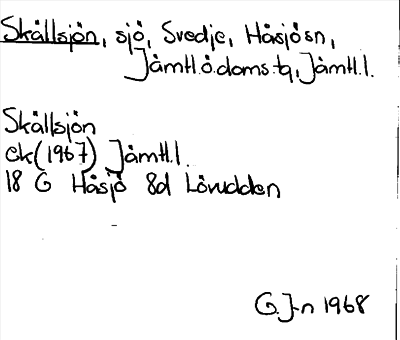 Skållsjön, sjö, Svedje, Håsjö sn,
Jämtl.ö.doms.tq, Jämtl.l.
Skållsjön
ek(1967) Jämtl.l.
18 G Håsjö 8d Lövudden
G.J-n 1968